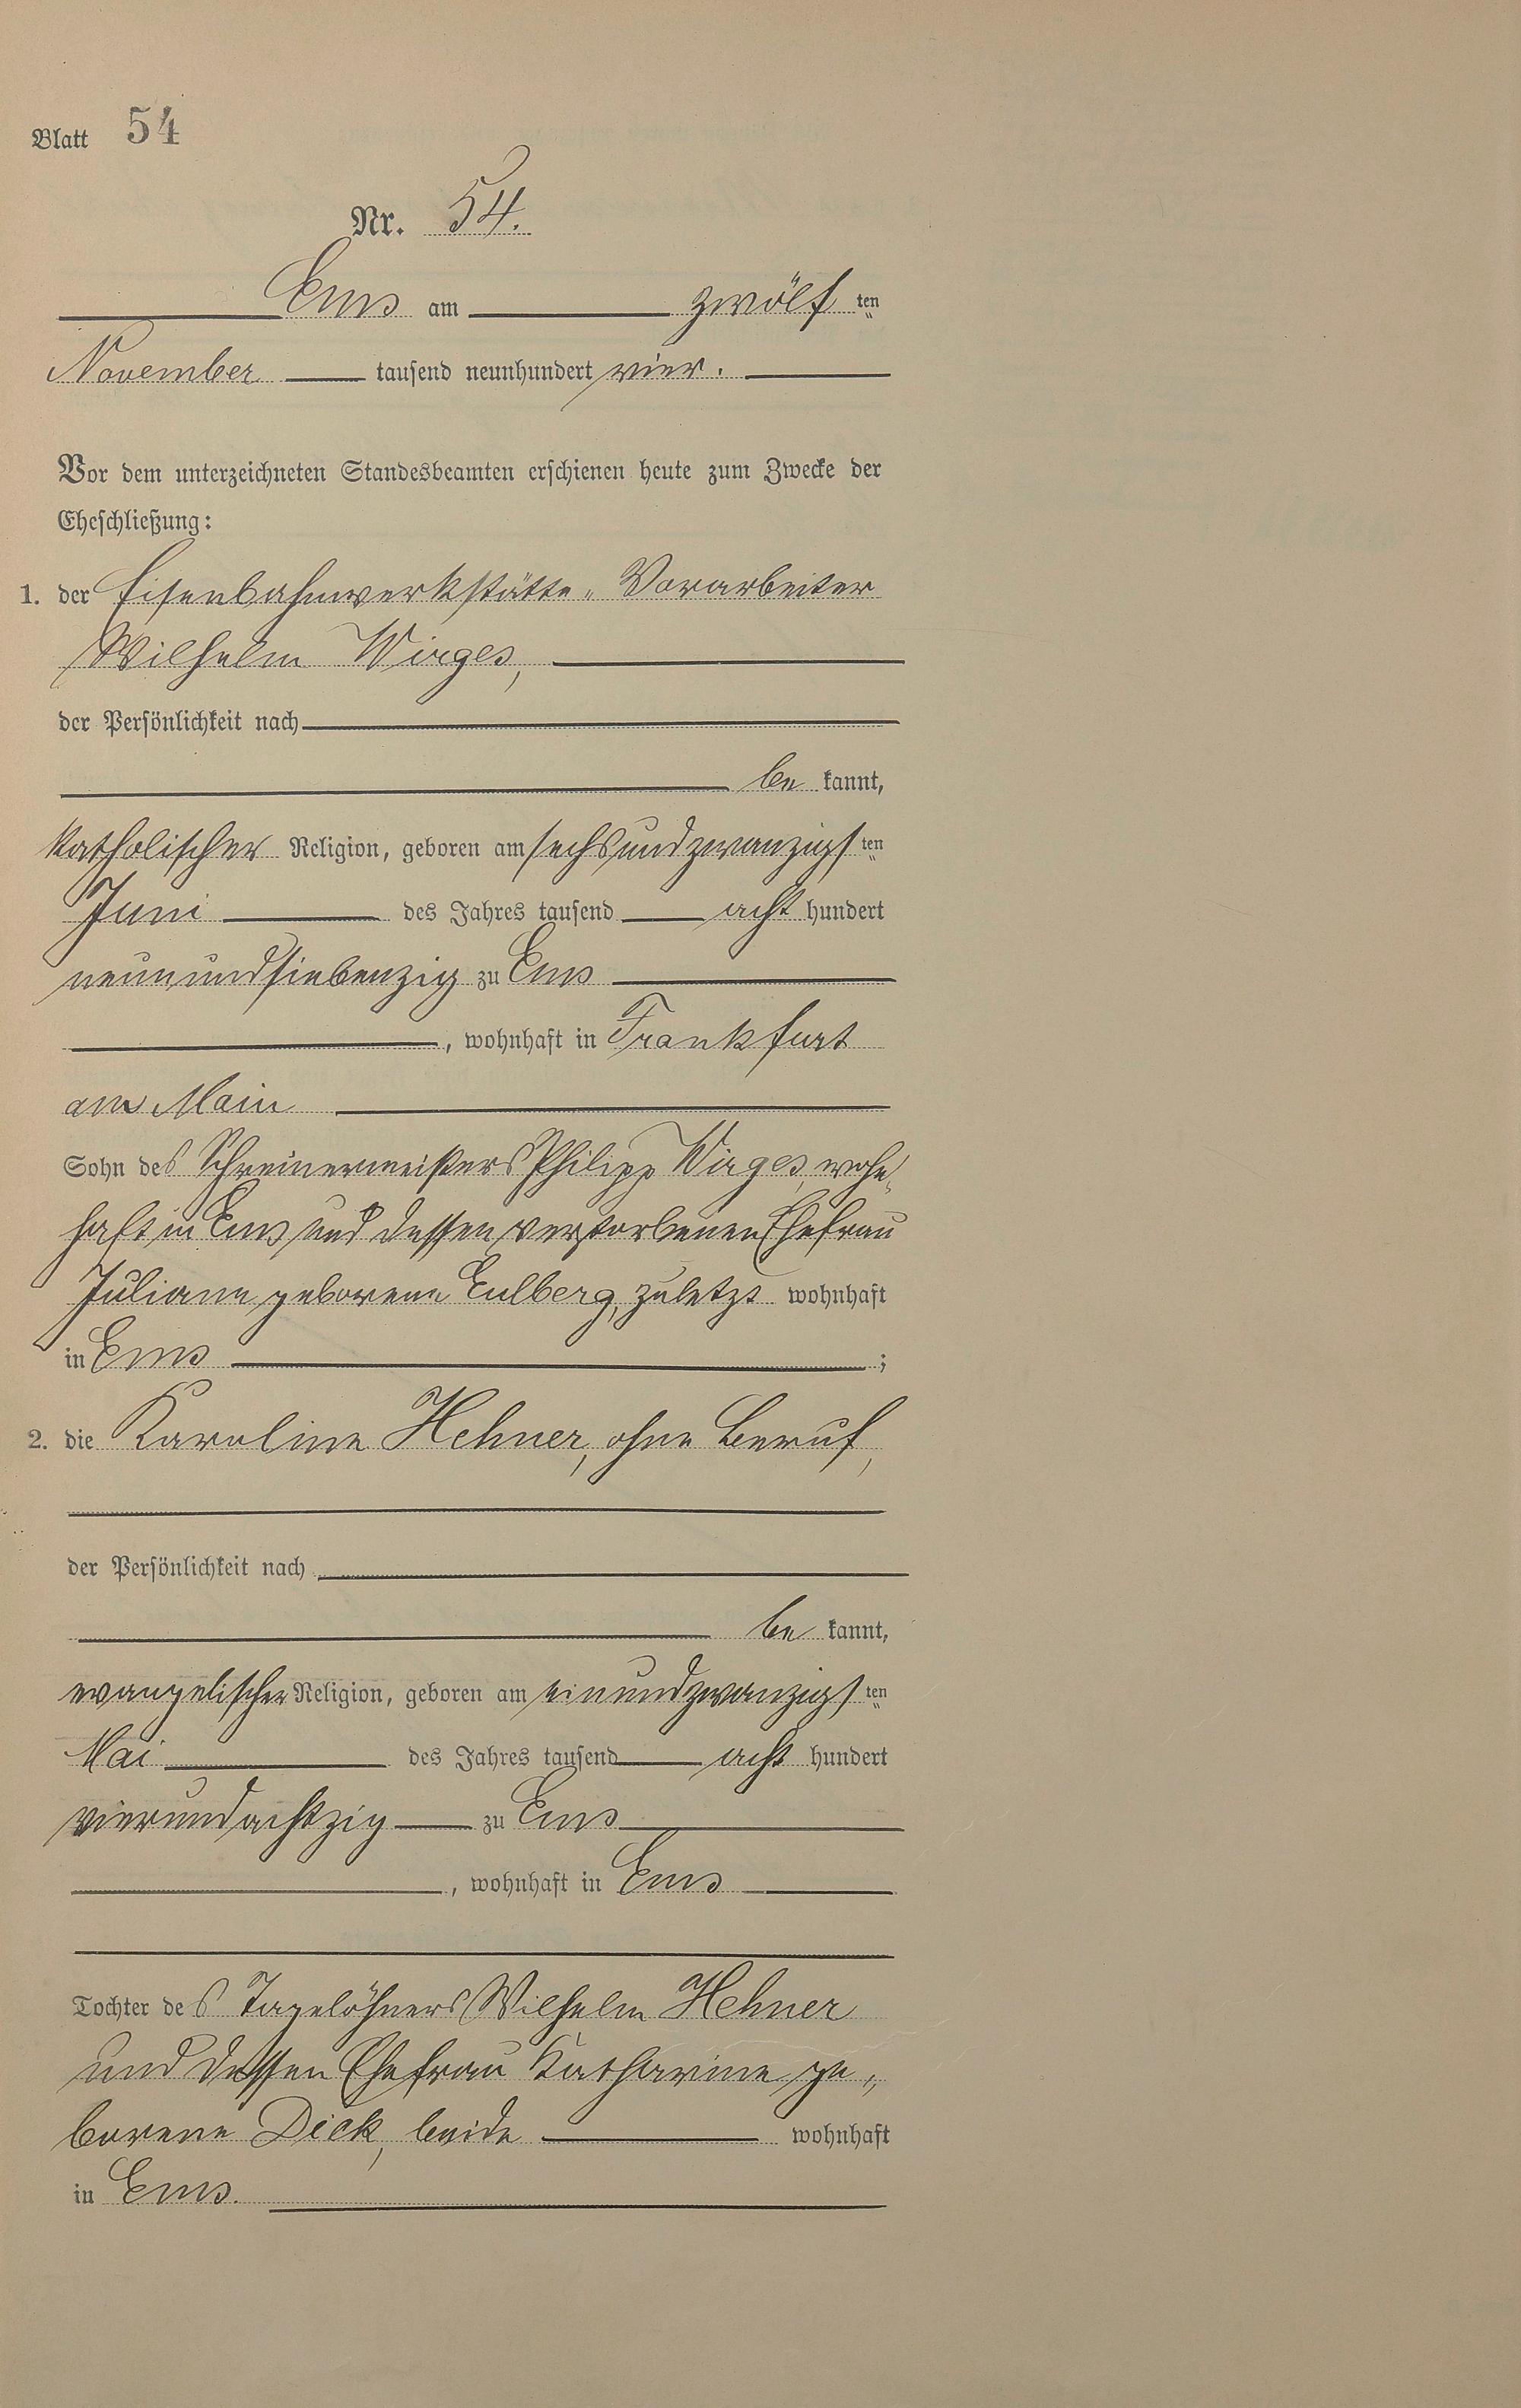 Blatt 54
Nr. 54.
Ems am zwölf ten
November tausend neunhundert vier.
Vor dem unterzeichneten Standesbeamten erschienen heute zum Zwecke der
Eheschließung:
1. der Eisenbahnwerkstätte-Vorarbeiter
Wilhelm Wirges,
der Persönlichkeit nach
be kannt,
katholischer Religion, geboren am sechsundzwanzigs ten
Juni des Jahres tausend acht hundert
neunundsiebenzig zu Ems
, wohnhaft in Frankfurt
am Main
Sohn des Schreinermeisters Philipp Wirges, wohn-
haft in Ems und dessen verstorbenen Ehefrau
Juliane geborene Eulberg, zuletzt wohnhaft
in Ems ;
2. die Karoline Hehner, ohne Beruf,
der Persönlichkeit nach
be kannt,
evangelischer Religion, geboren am einundzwanzigs ten
Mai des Jahres tausend acht hundert
vierundachtzig zu Ems
, wohnhaft in Ems
Tochter des Tagelöhners Wilhelm Hehner
und dessen Ehefrau Katharine ge-
borene Dick, beide wohnhaft
in Ems.